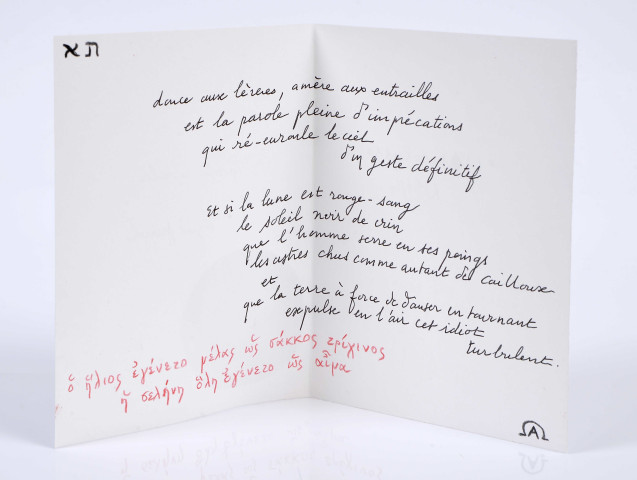 א ת
douce aux lèvres, amère aux entrailles
est la parole pleine d'imprécations
qui ré-enroule le ciel
d'un geste définitif
et si la lune est rouge-sang
le soleil noir de crin
que l'homme serre en ses poings
les astres chus comme autant de cailloux
et
que la terre à force de danser en tournant
expulse en l'air cet idiot
turbulent.
ὁ ἥλιος ἐγένετο μέλας ὡς σάκκος τρίχινος
ἡ σελήνη ὅλη ἐγένετο ὡς αἷμα
Ω A